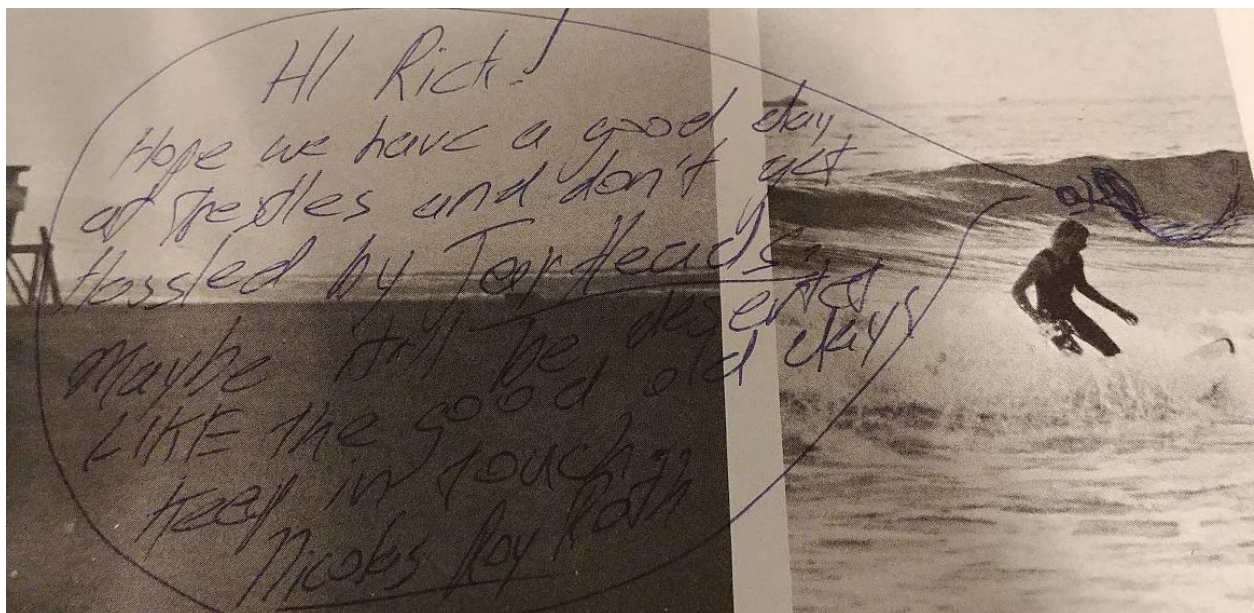 HI Rich!
Hope we have a good day
at Trestles and don't get
Hassled by Jar Heads.
Maybe it'll be deserted
LIKE the good old days
Keep in touch,
Nicolas Roy Roth